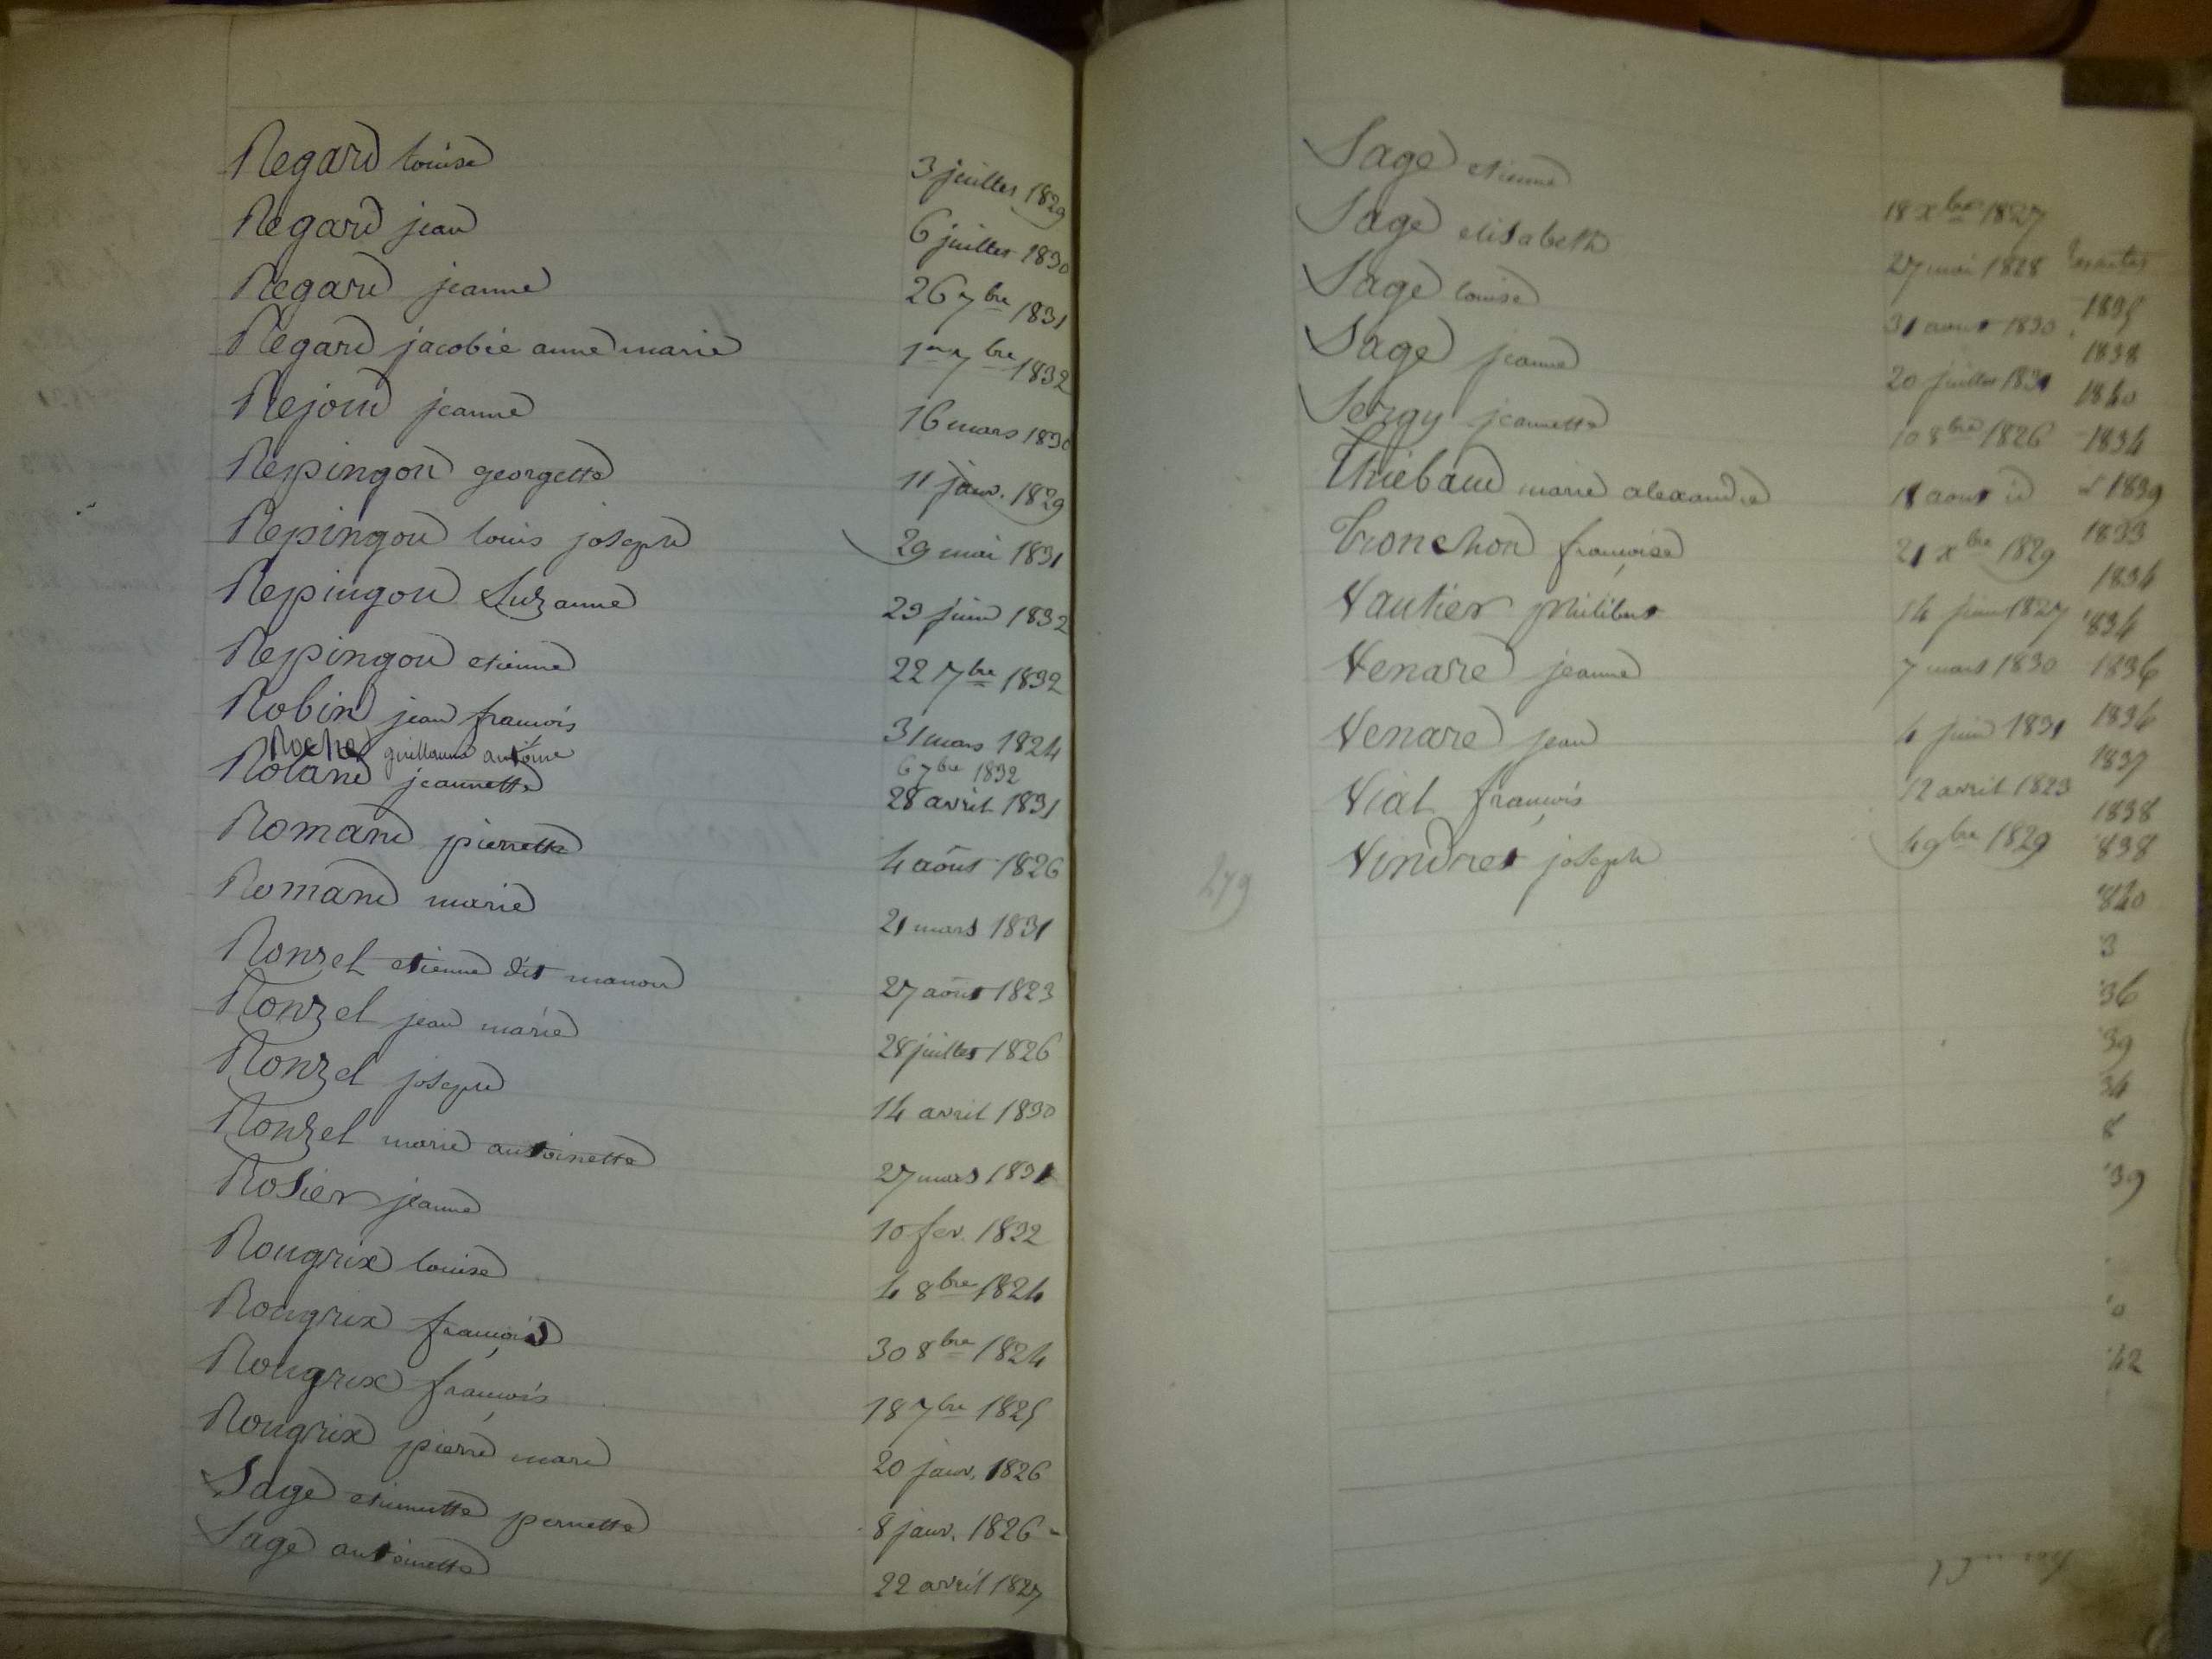 Regard louise 3 juillet 1829
Regard jean 6 juillet 1830
Regard jeanne 26 7bre 1831
Regard jacobée anne marie 1er 7bre 1832
Rejoud jeanne 16 mars 1830
Repingon georgette 11 janv. 1829
Repingon louis joseph 29 mai 1831
Repingon Suzanne 29 juin 1832
Repingon etienne 22 7bre 1832
Robin jean françois 31 mars 1824
Roche guillaume antoine 6 7bre 1832
Roland jeannette 28 avril 1831
Romand pierrette 4 août 1826
Romand marie 21 mars 1831
Ronzel etienne dit manon 27 août 1823
Ronzel jean marie 28 juillet 1826
Ronzel joseph 14 avril 1830
Ronzel marie antoinette 27 mars 1831
Rosier jeanne 10 fev. 1832
Rougrix louise 4 8bre 1824
Rougrix françois 30 8bre 1824
Rougrix françois 18 7bre 1825
Rougrix pierre marie 20 janv. 1826
Sage etiennette pernette 8 janv. 1826
Sage antoinette 22 avril 1827
Sage etienne 18 xbre 1827
Sage elisabeth 27 mai 1828
Sage louise 31 aout 1830
Sage jeanne 20 juillet 1831
Sergy jeannette 10 8bre 1826
Thiebaud marie alexandre 18 aout id
Tronchon françoise 21 xbre 1829
Vautier philibert 14 juin 1827
Venare jeanne 7 mars 1830
Venare jean 4 juin 1831
Vial françois 12 avril 1823
Vindret joseph 4 9bre 1829
279
1835
1838
1840
1834
1839
1833
1834
834
1836
1836
1837
1838
838
840
3
36
39
34
8
39
0
42